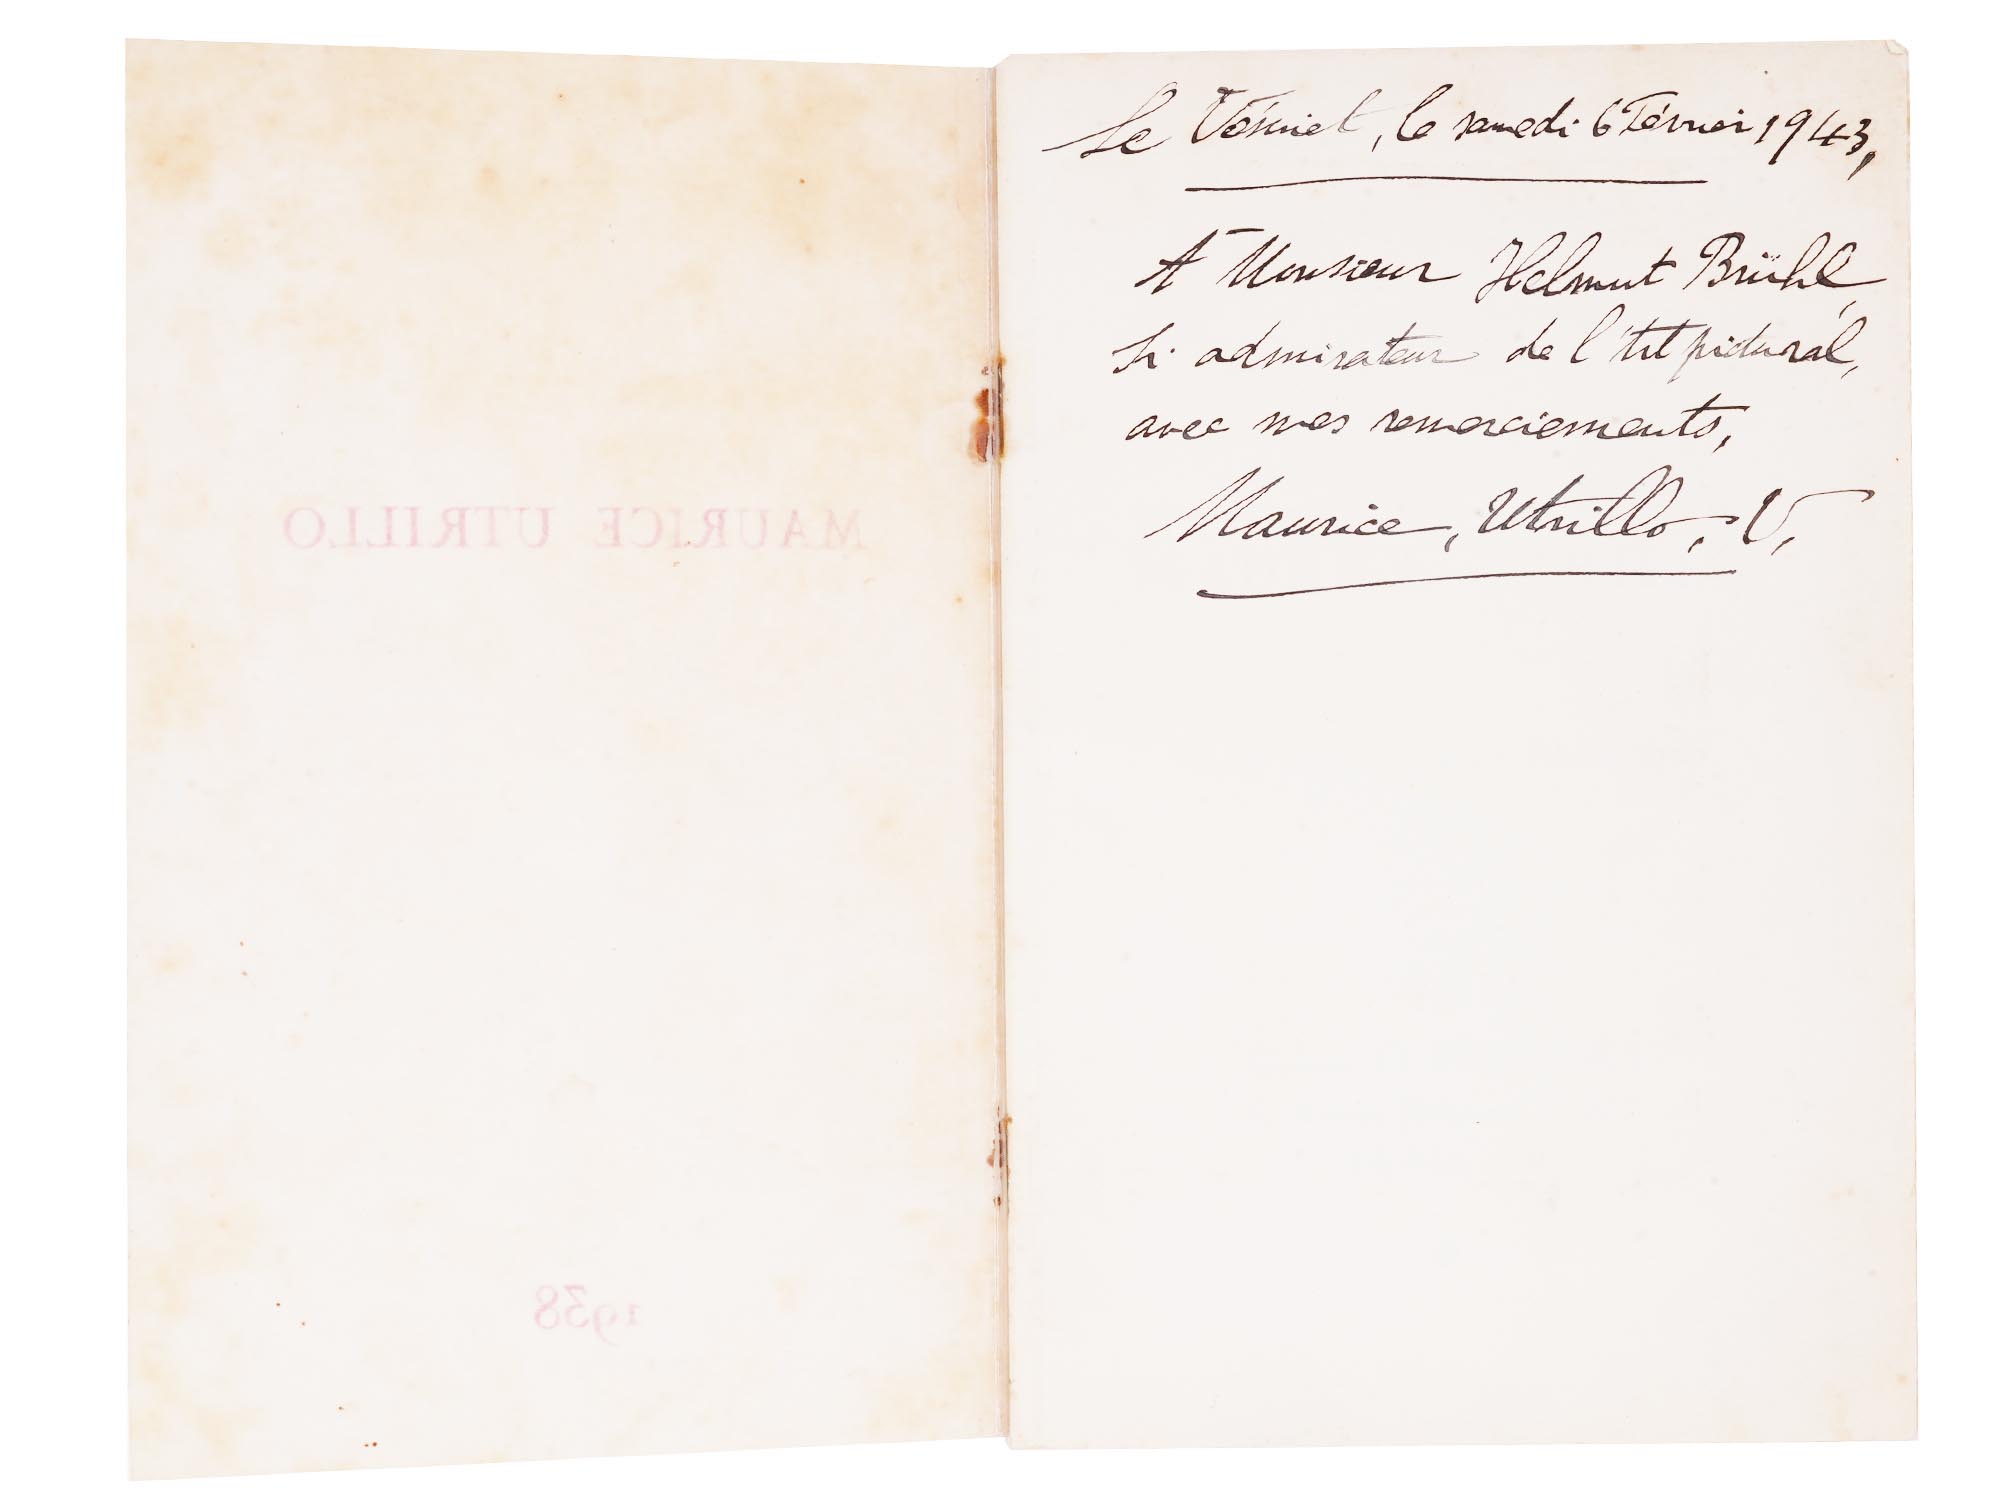 MAURICE UTRILLO
1938
Le Vésinet, le samedi 6 Février 1943,
A Monsieur Helmut Brühl,
si admirateur de l'Art pictural,
avec mes remerciements,
Maurice, Utrillo, V,